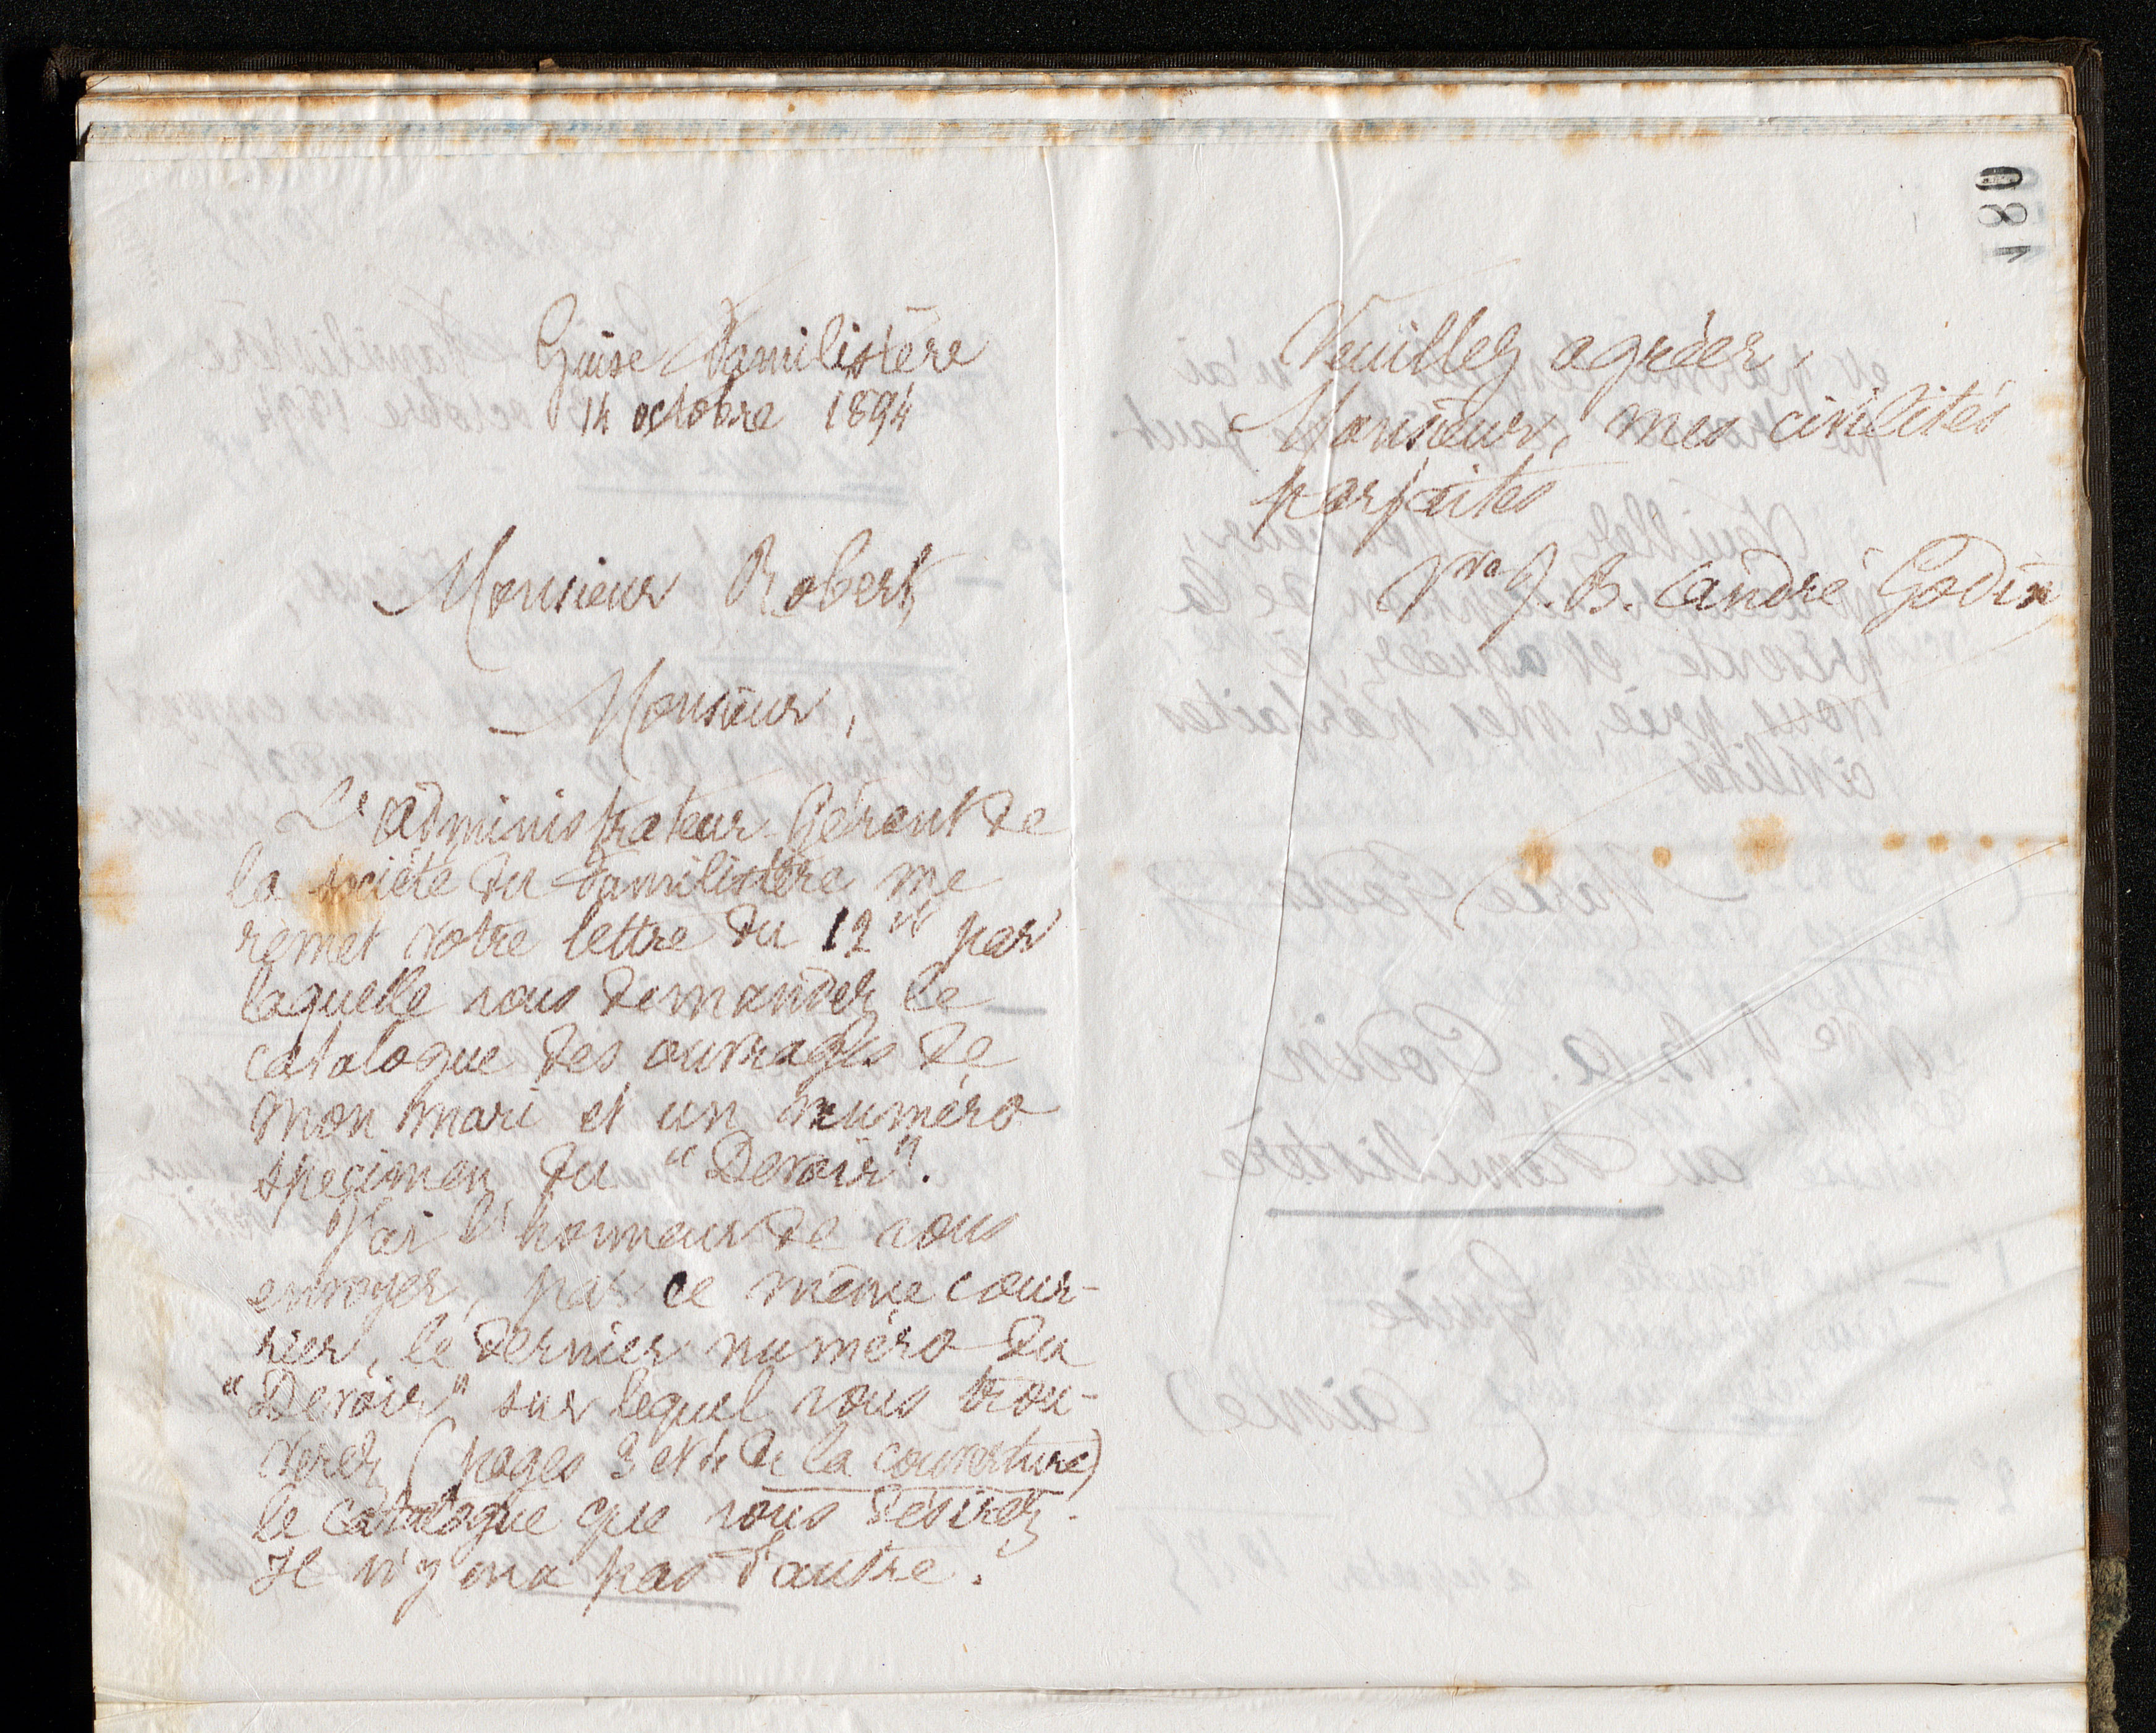 Guise Familistère
14 octobre 1894
Monsieur Robert
Monsieur,
L'administrateur-Gérant de
la société du Familistère me
remet votre lettre du 12 par
laquelle vous demandez le
catalogue des ouvrages de
mon mari et un numéro
specimen du "Devoir".
J'ai l'honneur de vous
envoyer, par ce même cour-
rier, le dernier numéro du
"Devoir" sur lequel vous trou-
verez (pages 3 et 4 de la couverture)
le catalogue que vous désirez.
Il n'y en a pas d'autre.
180
Veuillez agréer,
Monsieur, mes civilités
parfaites
Vve J. B. André Godin